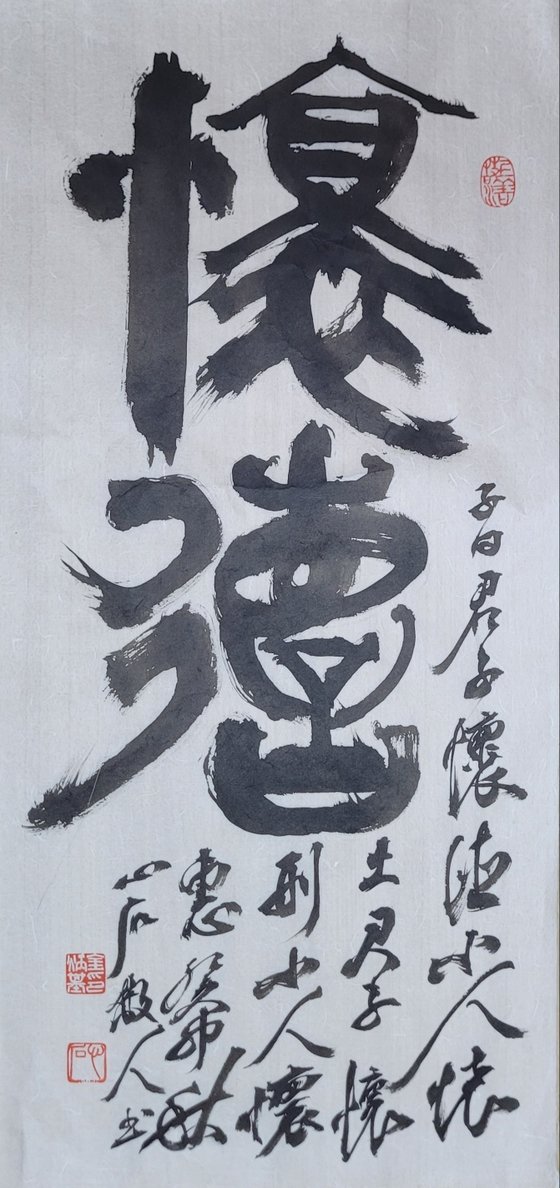 懷德
子曰君子懷德小人懷
土君子懷
刑小人懷
惠癸卯秋
心石散人書